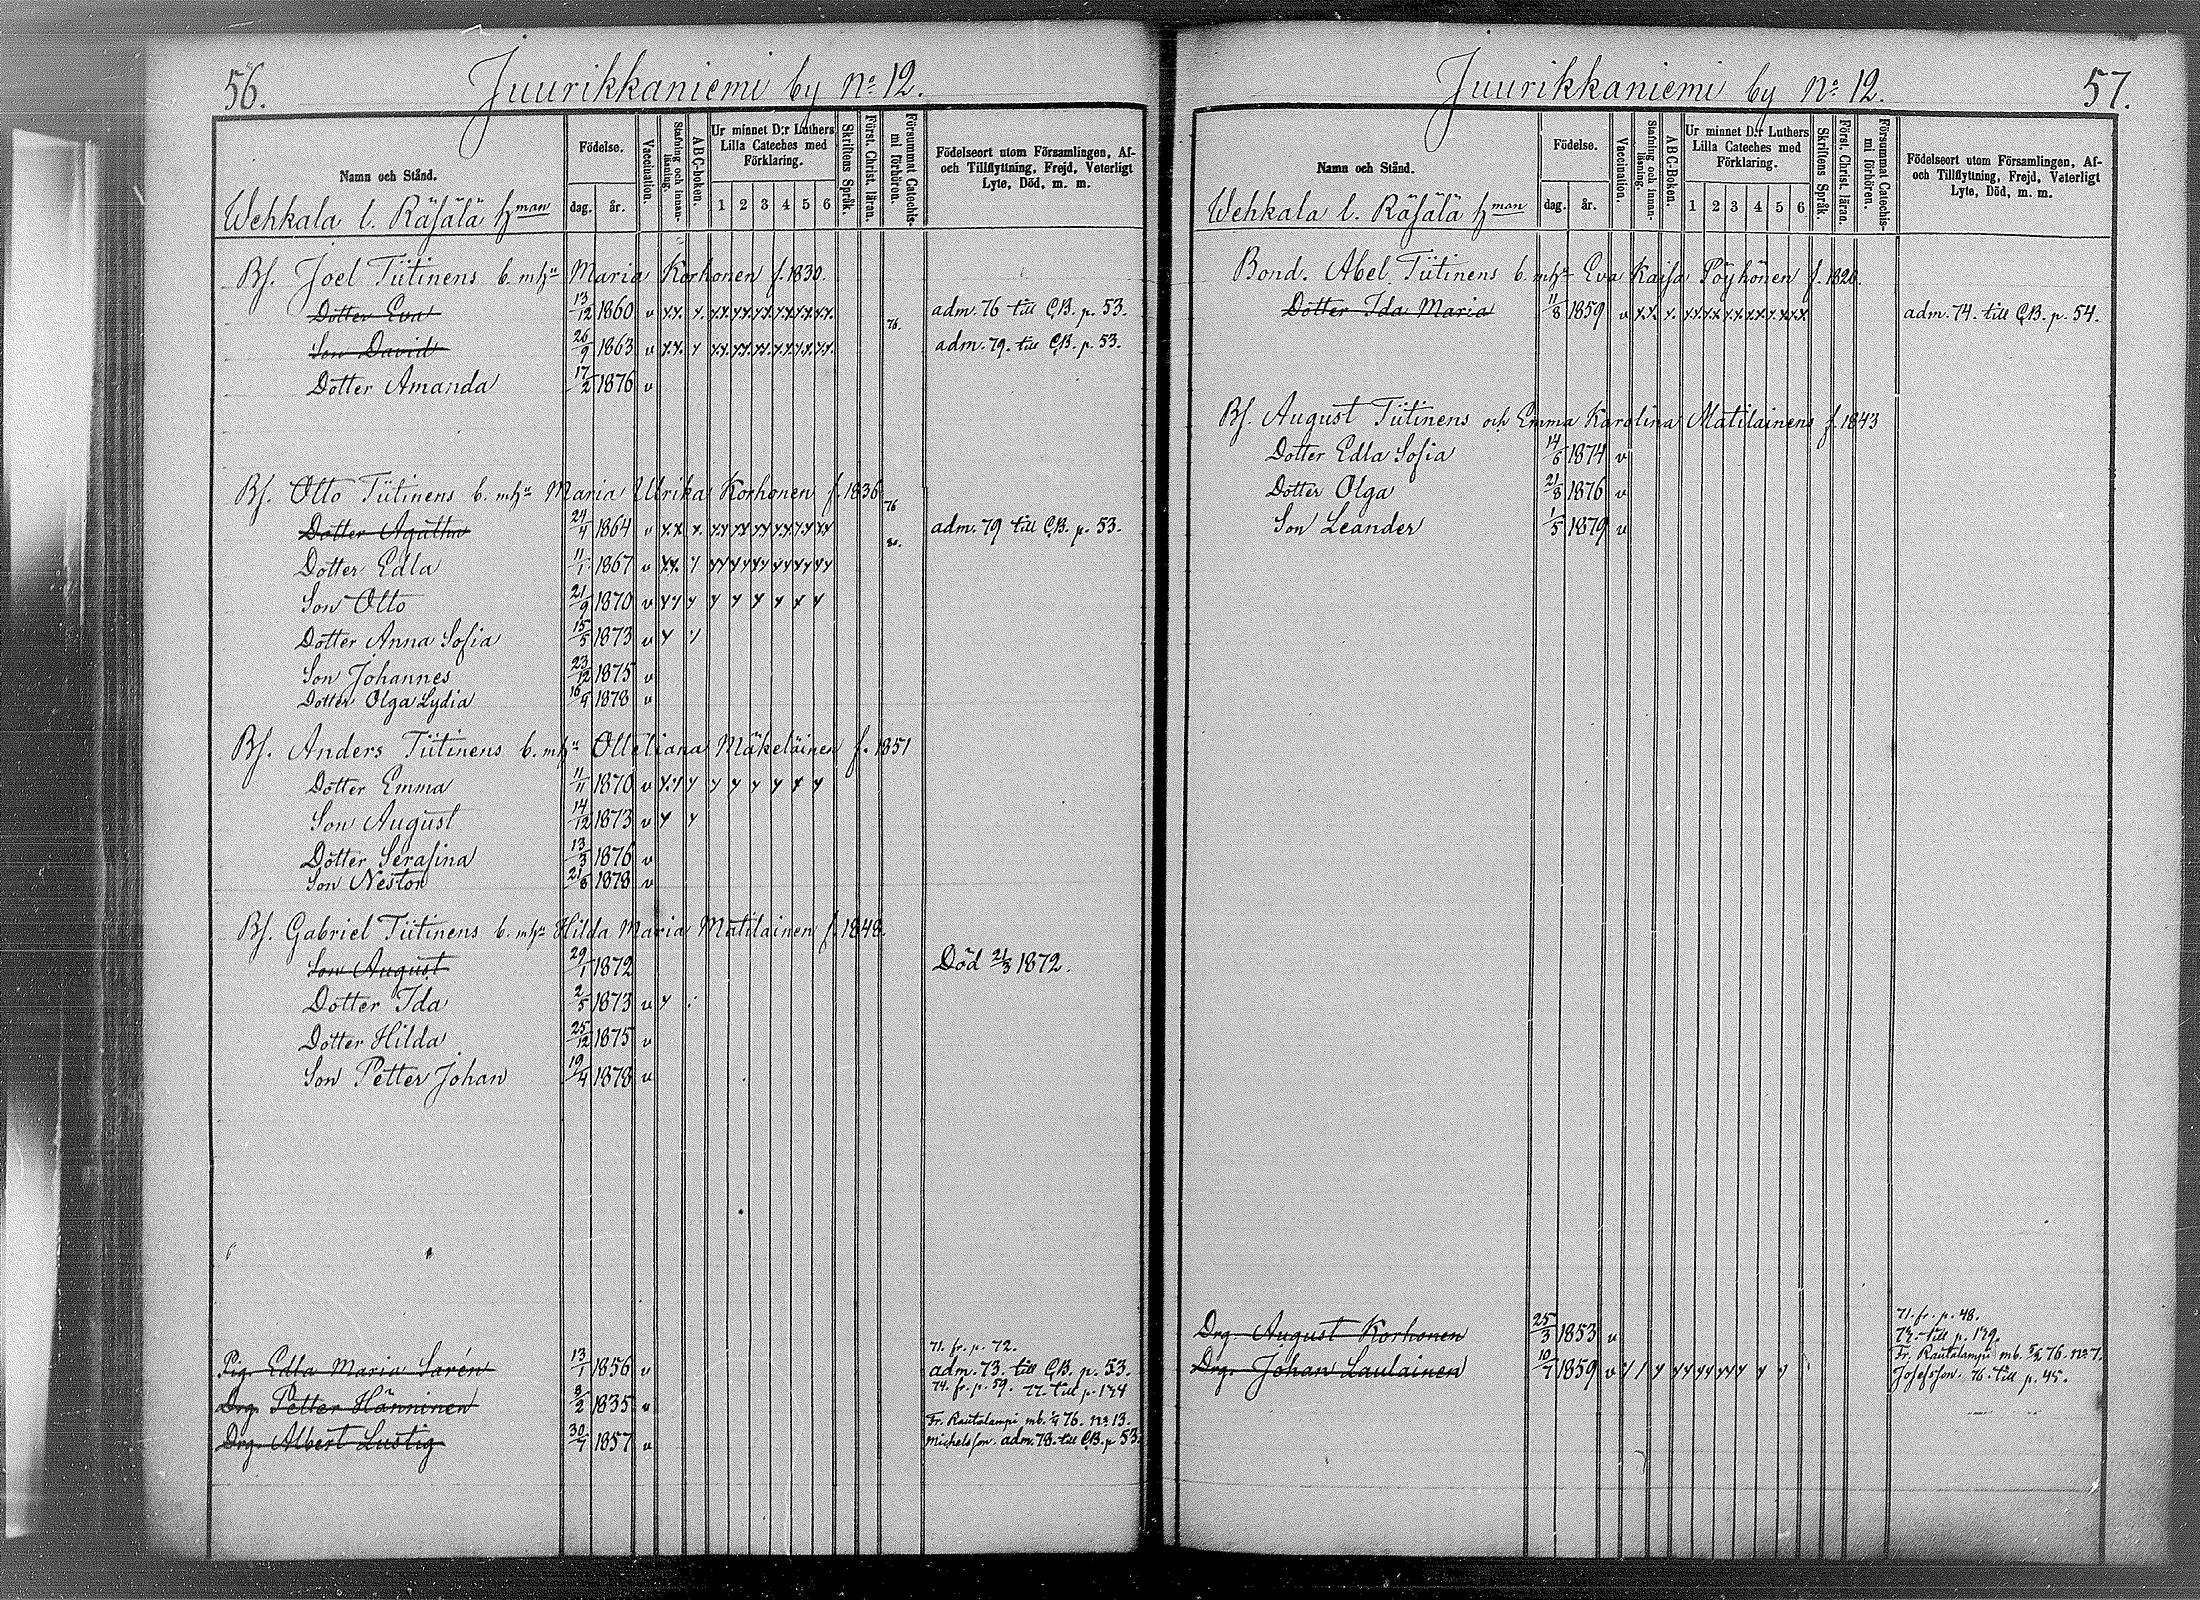 56.
Juurikkaniemi by No 12.
Namn och Stånd.
Födelse.
dag. år.
Vaccination.
Stafning och innanläsning.
ABC-boken.
Ur minnet D:r Luthers Lilla Cateches med Förklaring.
1 2 3 4 5 6
Skriftens Språk.
Först. Christ. läran.
Försummat Catechismi förhören.
Födelseort utom Församlingen, Af- och Tillflyttning, Frejd, Veterligt Lyte, Död, m. m.
Wehkala l. Räsälä hman
Bf. Joel Tiitinens b. m. hu Maria Korhonen f. 1830.
Dotter Eva 13/12 1860 v adm. 76 till C.B. p. 53.
76.
Son David 26/9 1863 v adm. 79. till C.B. p. 53.
Dotter Amanda 17/2 1876 v
Bf. Otto Tiitinens b. m. hu Maria Ulrika Korhonen f. 1836
76
Dotter Agatha 24/4 1864 v adm. 79 till C.B. p. 53.
80.
Dotter Edla 11/1 1867 v
Son Otto 21/9 1870 v
Dotter Anna Sofia 15/5 1873 v
Son Johannes 23/12 1875 v
Dotter Olga Lydia 16/9 1878 v
Bf. Anders Tiitinens b. m. hu Otteliana Mäkeläinen f. 1851
Dotter Emma 11/11 1870 v
Son August 14/12 1873 v
Dotter Serafina 13/3 1876 v
Son Nestor 21/8 1878 v
Bf. Gabriel Tiitinens b. m. hu Hilda Maria Matilainen f. 1848.
Son August 29/1 1872 Död 21/3 1872.
Dotter Ida 2/5 1873 v
Dotter Hilda 25/12 1875 v
Son Petter Johan 19/4 1878 v
71. fr. p. 72.
Pig. Edla Maria Sarén 13/1 1856 v adm. 73. till C.B. p. 53.
74. fr. p. 59. 77. till p. 174
Drg. Petter Hänninen 8/2 1835 v
Fr. Rautalampi mb. 76. No 13.
Drg. Albert Lustig 30/7 1857 v Michelsson. adm. 78. till C.B. p 53.
Juurikkaniemi by No 12.
57.
Namn och Stånd.
Födelse.
dag. år.
Vaccination.
Stafning och innanläsning.
ABC-Boken.
Ur minnet D:r Luthers Lilla Cateches med Förklaring.
1 2 3 4 5 6
Skriftens Språk.
Först. Christ. läran.
Försummat Catechismi förhören.
Födelseort utom Församlingen, Af- och Tillflyttning, Frejd, Veterligt Lyte, Död, m. m.
Wehkala l. Räsälä hman
Bond. Abel Tiitinens b. m. hu Eva Kaisa Pöyhönen f. 1820.
Dotter Ida Maria 11/8 1859 v adm. 74. till C.B. p. 54.
Bf. August Tiitinens och Emma Karolina Matilainens f. 1843
Dotter Edla Sofia 14/6 1874 v
Dotter Olga 21/8 1876 v
Son Leander 1/5 1879 v
71. fr. p. 48.
Drg. August Korhonen 25/3 1853 v 77. till p. 179.
Fr. Rautalampi mb. 76. No 7.
Drg. Johan Laulainen 10/7 1859 v Josefsson. 76. till p. 45.